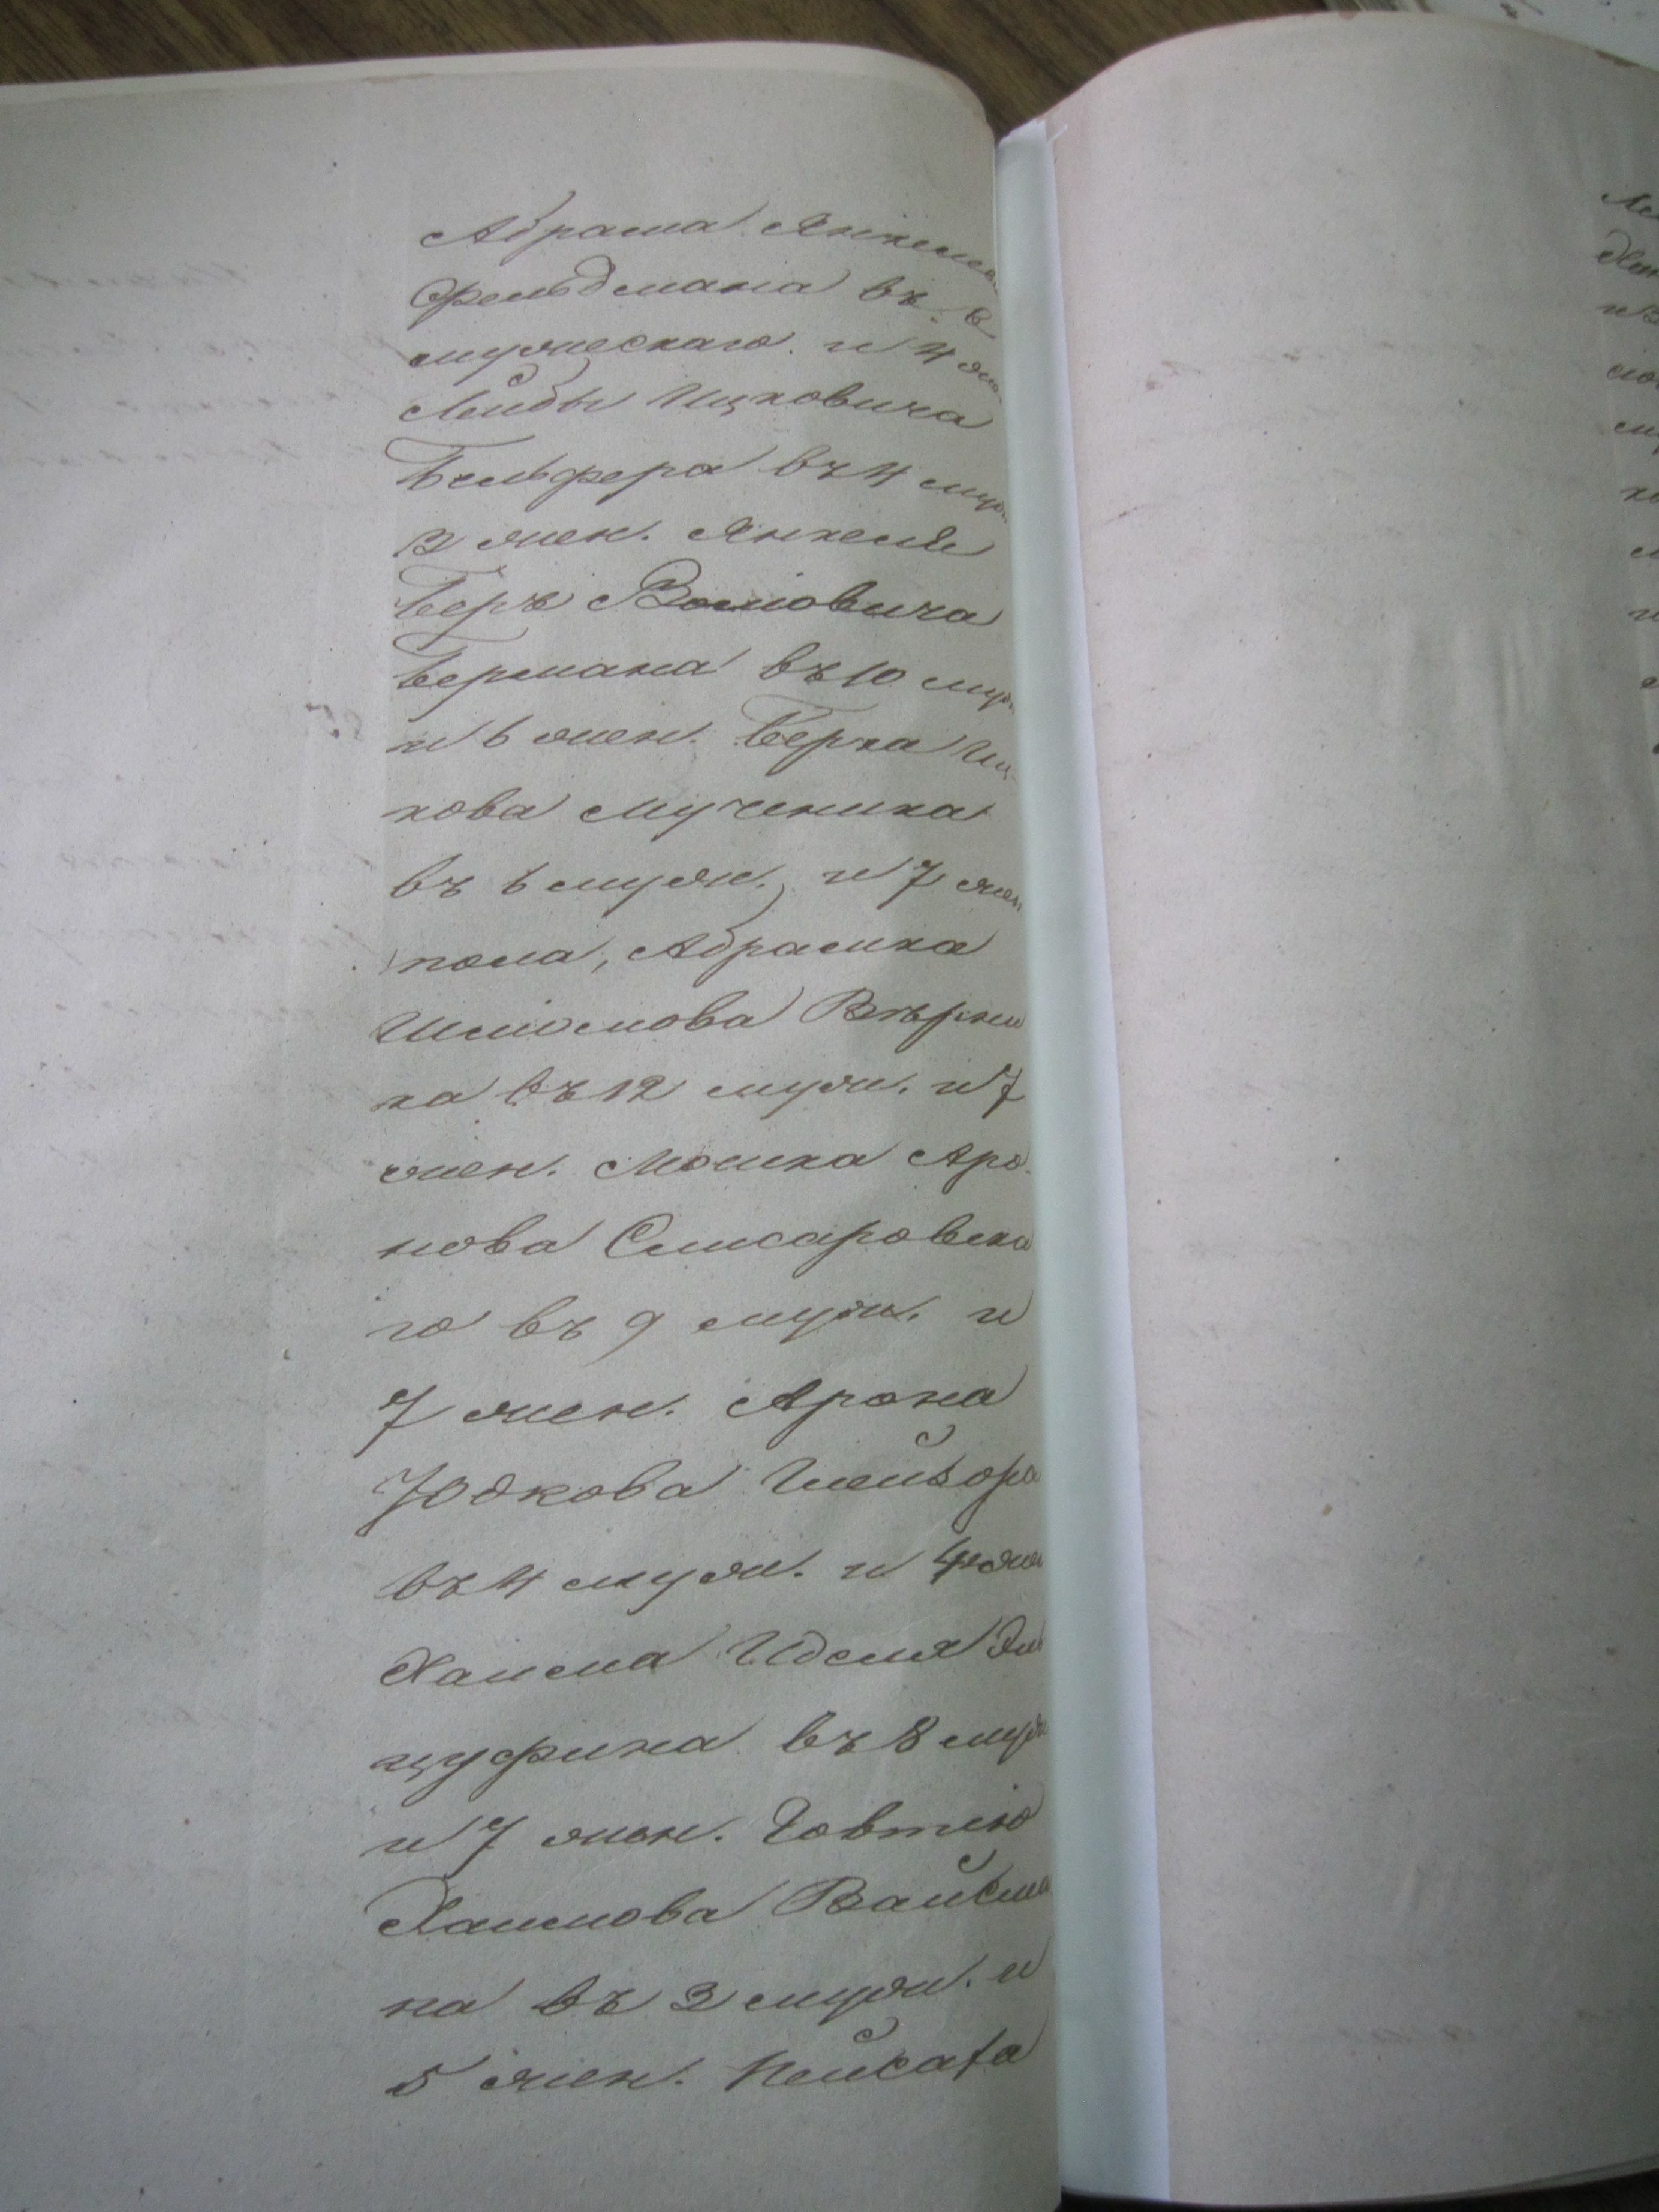 Абрама Янкеле
Фельдмана въ 6
мужескаго и 4 же
Лейбы Ицковича
Бельфера въ 4 муж
2 жен. Янкеля
Беръ Волковича
Бермана въ 10 муж
и 6 жен. Берка Иц
кова Мученика
въ 6 муж. и 7 жен
пола, Абрамка
Шлiомова Вѣрни
ка въ 12 муж. и 7
жен. Мошка Аро
нова Слисаровска
го въ 9 муж. и
7 жен. Арона
Юдкова
въ 4 муж. и 4 жен
Хаима Иделя
цуфина въ 8 муж
и 7 жен. Говшiю
Хаимова Вайсма
на въ 3 муж. и
5 жен. Пейсаха